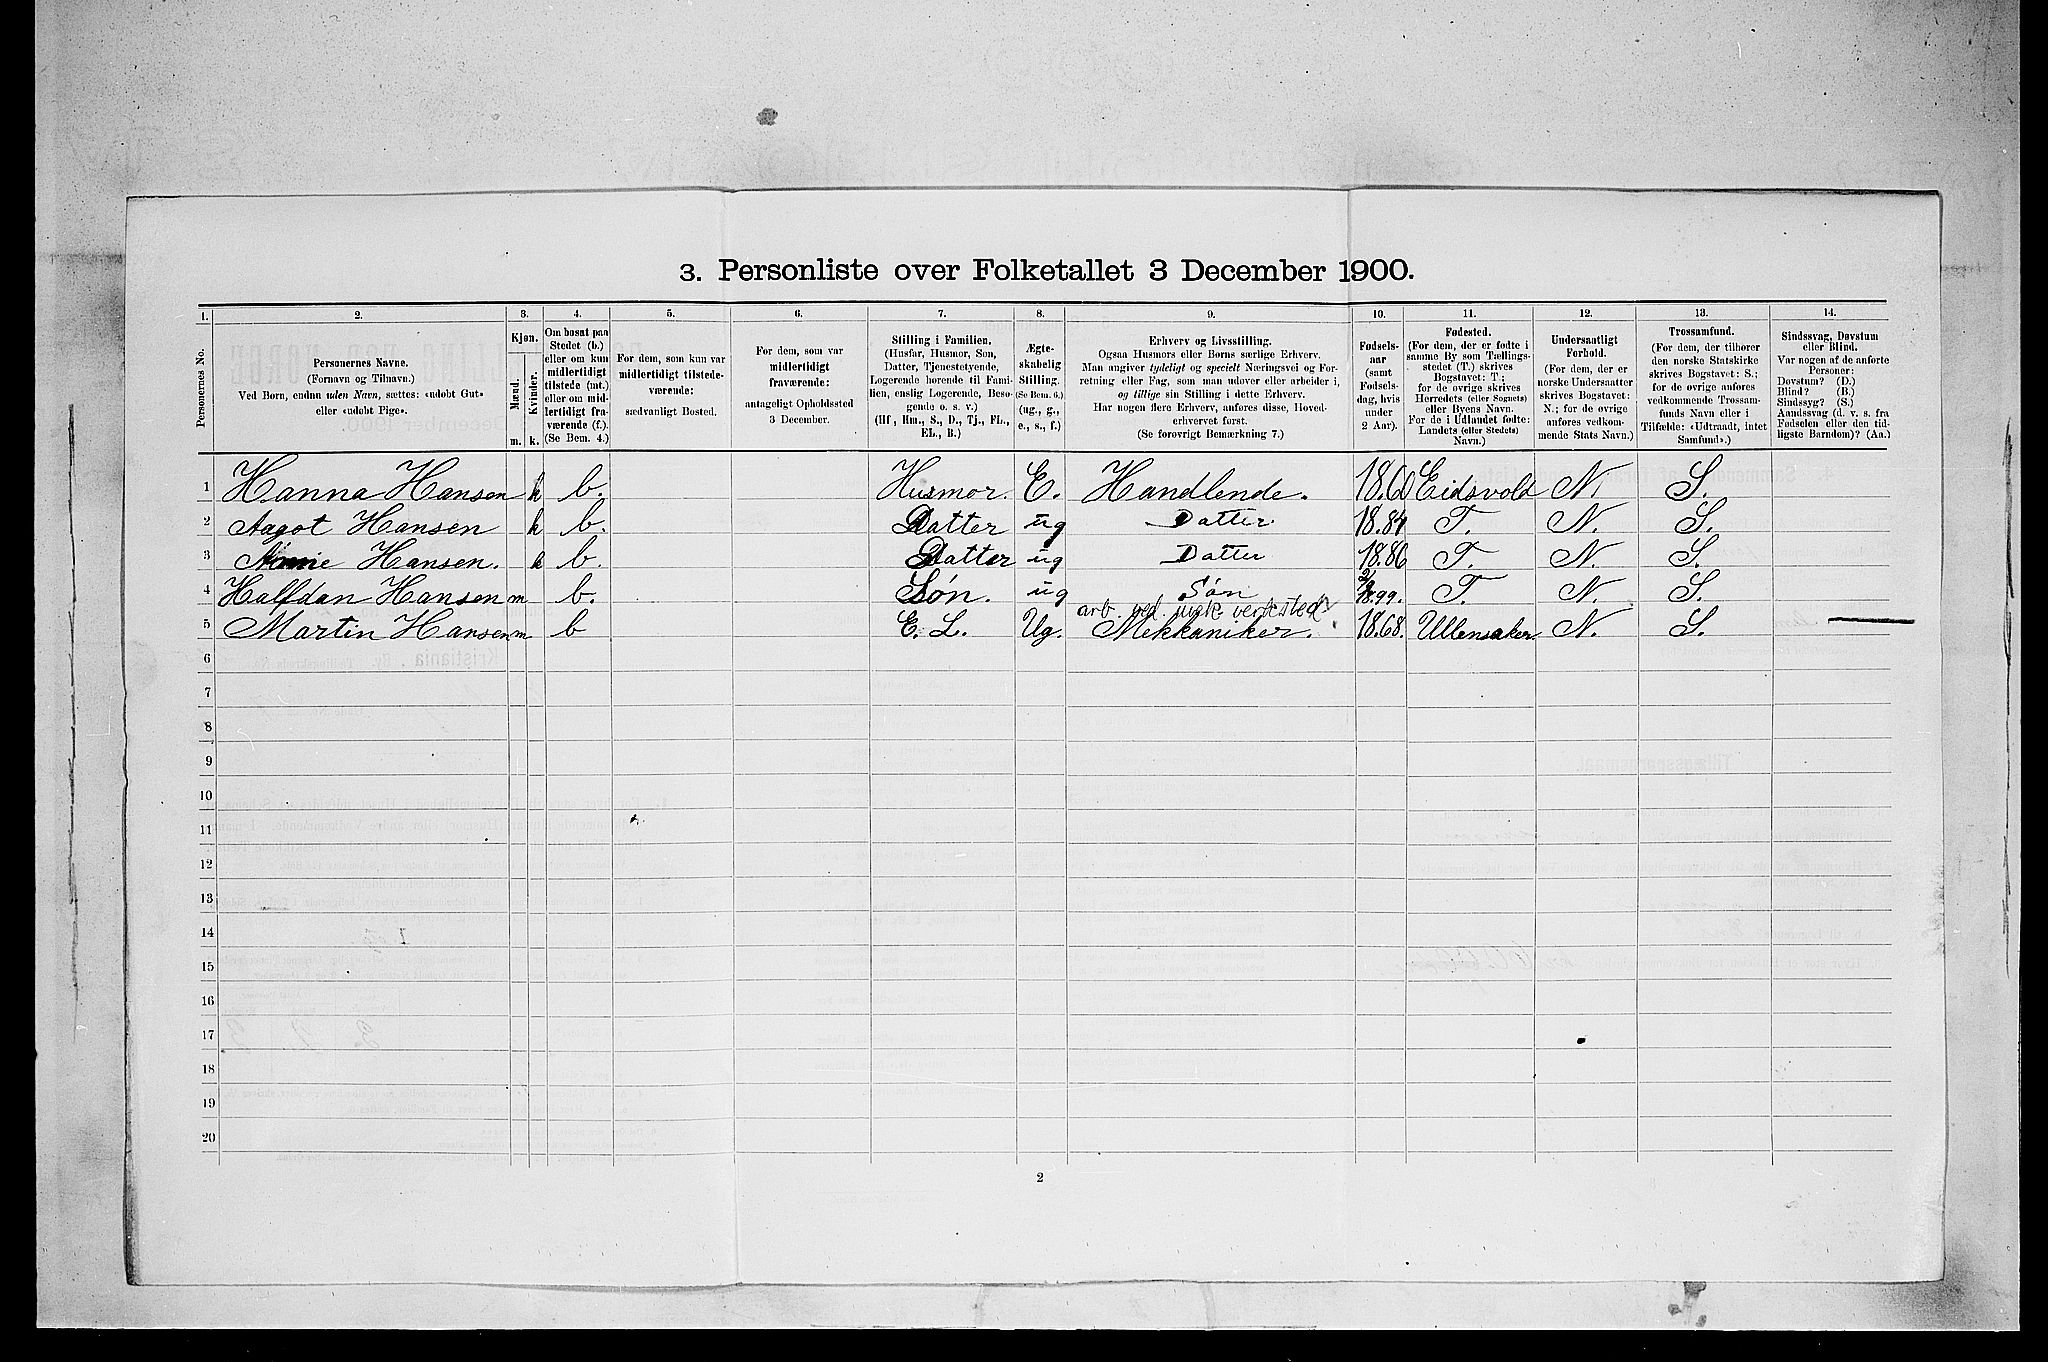 3. Personliste over Folketallet 3 December 1900.
1. 2. 3. 4. 5. 6. 7. 8. 9. 10. 11. 12. 13. 14.
Personernes No.
Personernes Navne.
(Fornavn og Tilnavn.)
Ved Børn, endnu uden Navn, sættes: «udøbt Gut»
eller «udøbt Pige».
Kjøn.
Mænd. Kvinder.
m. k.
Om bosat paa
Stedet (b.)
eller om kun
midlertidigt
tilstede (mt.)
eller om mid-
lertidigt fra-
værende (f.)
(Se Bem. 4.)
For dem, som kun var
midlertidigt tilstede-
værende:
sædvanligt Bosted.
For dem, som var
midlertidigt
fraværende:
antageligt Opholdssted
3 December.
Stilling i Familien.
(Husfar, Husmor, Søn,
Datter, Tjenestetyende,
Logerende hørende til Fami-
lien, enslig Logerende, Besø-
gende o. s. v.)
(Hf, Hm., S., D., Tj., FL.,
EL., B.)
Ægte-
skabelig
Stilling.
(Se Bem. 6.)
(ug., g.,
e., s., f.)
Erhverv og Livsstilling.
Ogsaa Husmors eller Børns særlige Erhverv.
Man angiver tydeligt og specielt Næringsvei og For-
retning eller Fag, som man udøver eller arbeider i,
og tillige sin Stilling i dette Erhverv.
Har nogen flere Erhverv, anføres disse, Hoved-
erhvervet først.
(Se forøvrigt Bemærkning 7.)
Fødsels-
aar
(samt
Fødsels-
dag, hvis
under
2 Aar).
Fødested.
(For dem, der er fødte i
samme By som Tællings-
stedet (T.) skrives
Bogstavet: T;
for de øvrige skrives
Herredets (eller Sognets)
eller Byens Navn.
For de i Udlandet fødte:
Landets (eller Stedets)
Navn.)
Undersaatligt
Forhold.
(For dem, der er
norske Undersaatter
skrives Bogstavet:
N.; for de øvrige
anføres vedkom-
mende Stats Navn.)
Trossamfund.
(For dem, der tilhører
den norske Statskirke
skrives Bogstavet: S.;
for de øvrige anføres
vedkommende Trossam-
funds Navn eller i
Tilfælde: «Udtraadt, intet
Samfund».)
Sindssvag, Døvstum
eller Blind.
Var nogen af de anførte
Personer:
Døvstum? (D.)
Blind? (B.)
Sindssyg? (S.)
Aandssvag (d. v. s. fra
Fødselen eller den tid-
ligste Barndom)? (Aa.)
1 Hanna Hansen k b. Husmor. E. Handlende. 18.60 Eidsvold N. S.
2 Aagot Hansen k b. Datter ug Datter 18.84 T. N. S.
3 Hansen. k b. Datter ug Datter 18.86 T. N. S.
4 Halfdan Hansen m b. Søn. ug Søn 18.99. T. N. S.
arb. ved mek. verksted
5 Martin Hansen m. b E. L. Ug. Mekkaniker. 18.68. Ullensaker N. S.
6
7
8
9
10
11
12
13
14
15
16
17
18
19
20
2